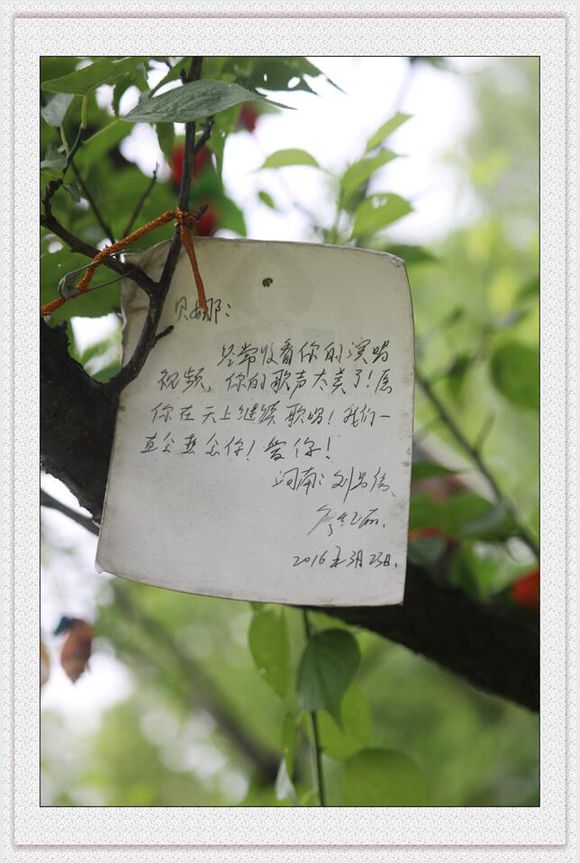 贝娜:
经常收看你的演唱
视频,你的歌声太美了!愿
你在天上继续歌唱!我们一
直会想念你!爱你!
河南:刘
2016年3月23日.